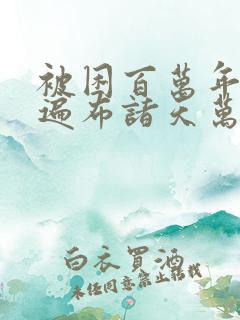 被困百萬年
遍布諸天萬
白衣買酒
未经同意禁止转载